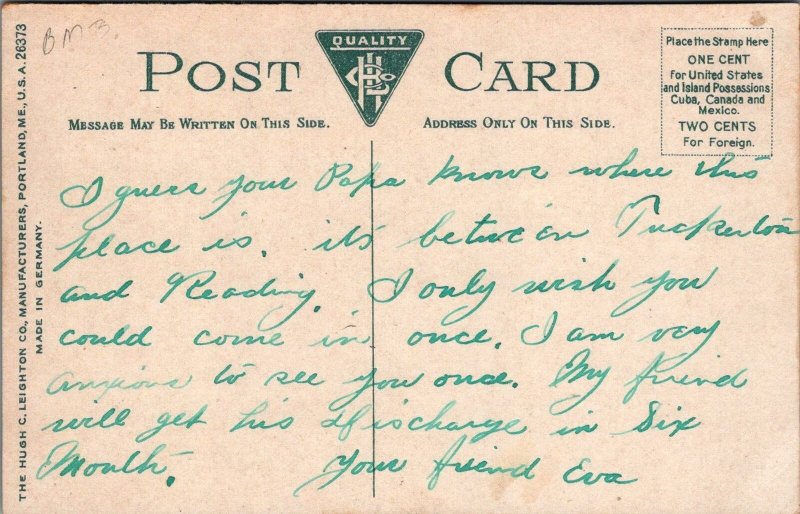 BMB.
QUALITY
POST CARD
MESSAGE MAY BE WRITTEN ON THIS SIDE.
ADDRESS ONLY ON THIS SIDE.
Place the Stamp Here
ONE CENT
For United States
and Island Possessions
Cuba, Canada and
Mexico.
TWO CENTS
For Foreign.
THE HUGH C. LEIGHTON CO., MANUFACTURERS, PORTLAND, ME., U.S.A. 26373
MADE IN GERMANY.
I guess your Papa knows where this
place is. its between Tuckerton
and Reading. I only wish you
could come in once. I am very
anxious to see you once. My friend
will get his discharge in Six
Month. Your friend Eva